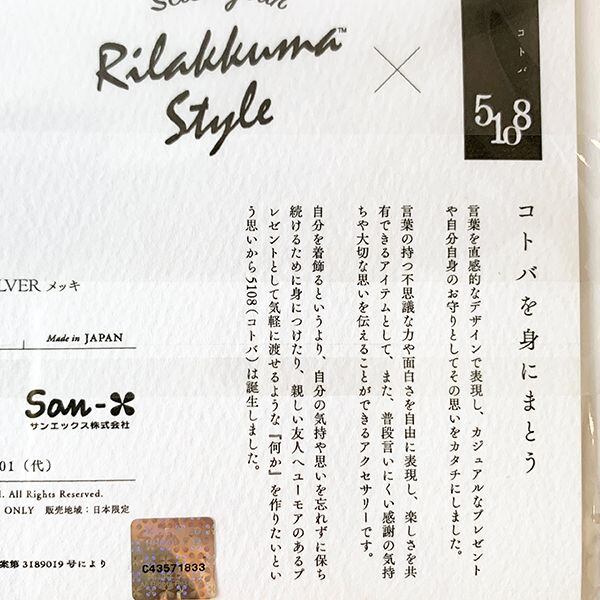 Rilakkuma™
Style
×
コトバ
5108
コトバを身にまとう
言葉を直感的なデザインで表現し、カジュアルなプレゼント
や自分自身のお守りとしてその思いをカタチにしました。
言葉の持つ不思議な力や面白さを自由に表現し、楽しさを共
有できるアイテムとして、また、普段言いにくい感謝の気持
ちや大切な思いを伝えることができるアクセサリーです。
自分を着飾るというより、自分の気持や思いを忘れずに保ち
続けるために身につけたり、親しい友人へユーモアのあるプ
レゼントとして気軽に渡せるような『何か』を作りたいとい
う思いから5108（コトバ）は誕生しました。
LVER メッキ
Made in JAPAN
San-X
サンエックス株式会社
01（代）
d. All Rights Reserved.
ONLY 販売地域：日本限定
案第3189019号により
C43571833